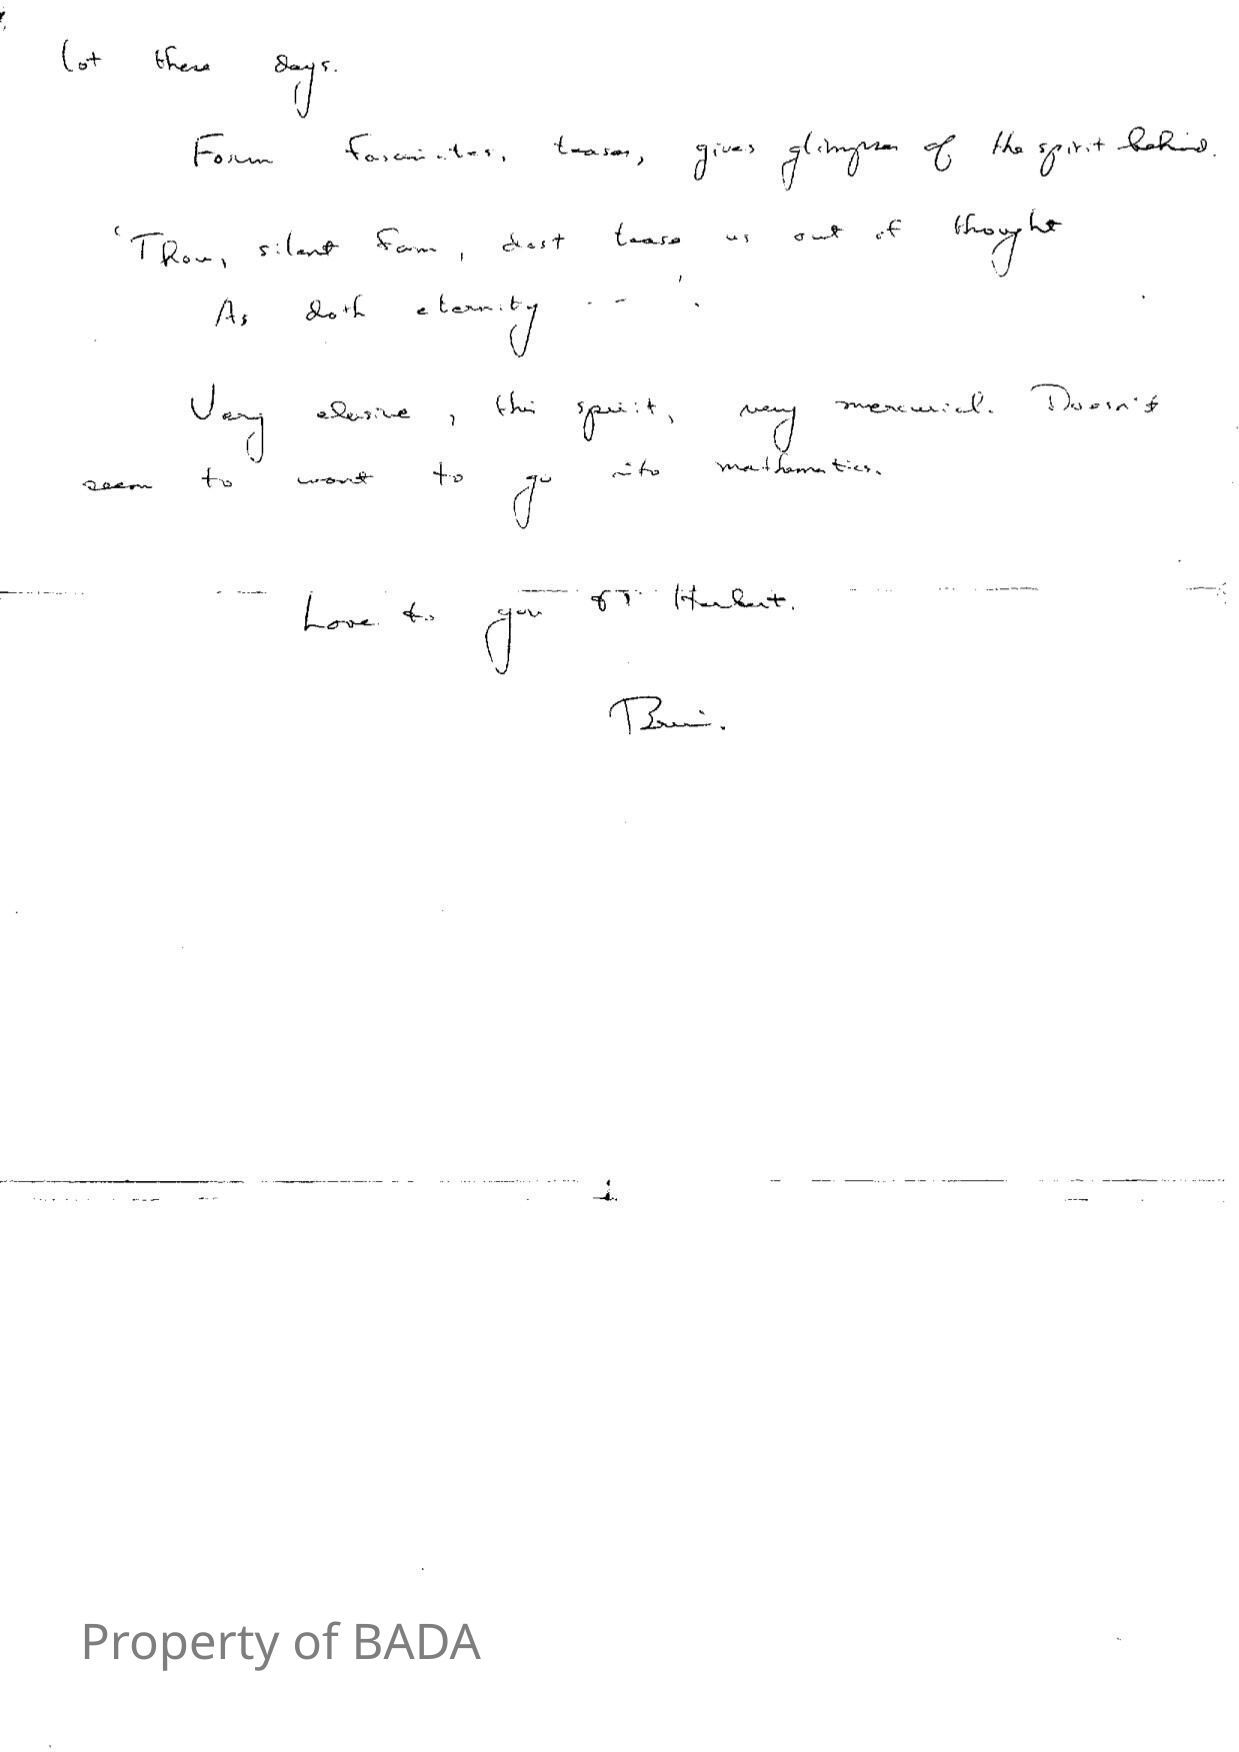 lot these days.
Form fascinates, teases, gives glimpses of the spirit behind.
'Thou, silent form, dost tease us out of thought
As doth eternity --'.
Very elusive, this spirit, very mercurial. Doesn't
seem to want to go into mathematics.
Love to you Herbert.
Property of BADA